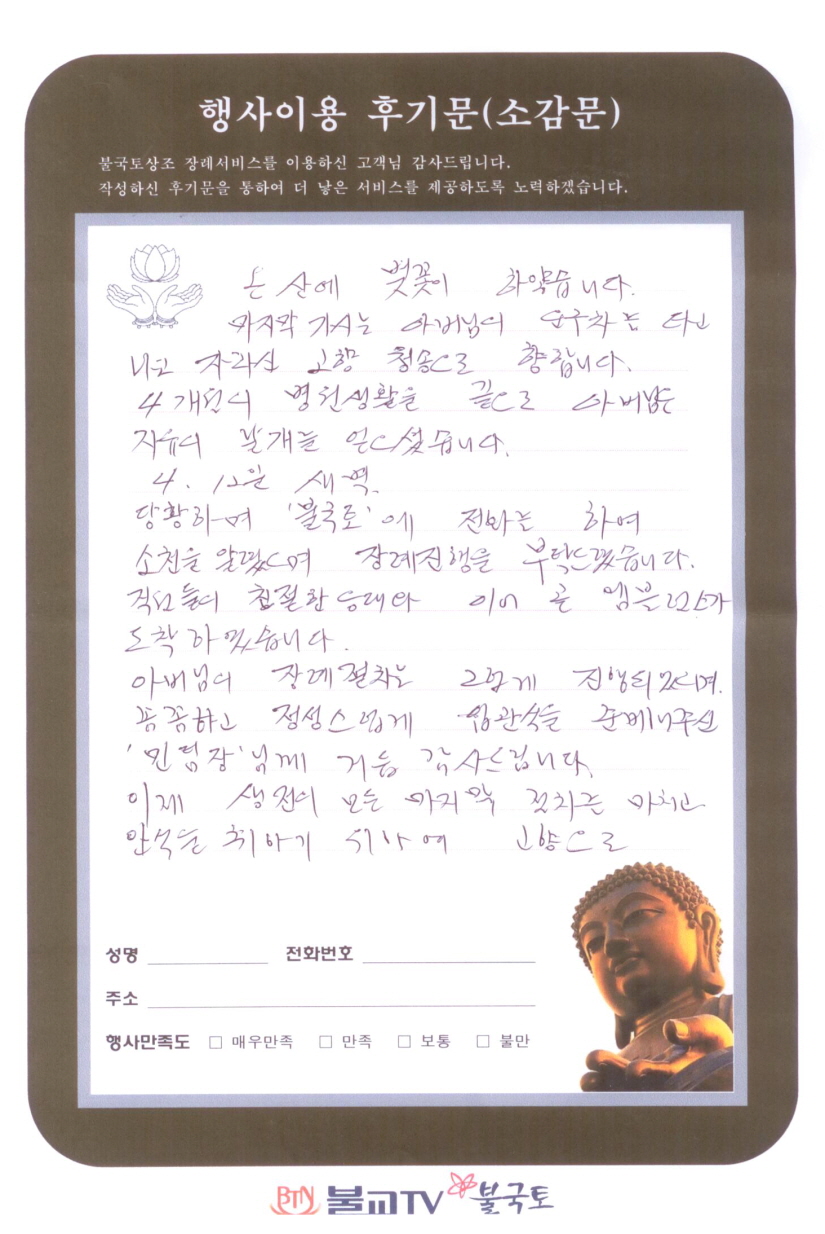 행사이용 후기문(소감문)
불국토상조 장례서비스를 이용하신 고객님 감사드립니다.
작성하신 후기문을 통하여 더 낳은 서비스를 제공하도록 노력하겠습니다.
온 산에 벚꽃이 하얗습니다.
마지막 가시는 아버님의 운구차는 타고
나고 자라신 고향 청송으로 향합니다.
4개월의 병원생활을 끝으로 아버님은
자유의 날개를 얻으셨습니다.
4. 12일 새벽.
당황하며 '불국토'에 전화는 하여
소천을 알렸으며 장례진행을 부탁드렸습니다.
직원들의 친절한 응대와 이어 곧 엠블런스가
도착하였습니다.
아버님의 장례절차는 그렇게 진행되었으며.
꼼꼼하고 정성스럽게 입관식을 준비해주신
'민팀장'님께 거듭 감사드립니다.
이제 생전의 모든 마지막 절차를 마치고
안식을 취하기 위하여 고향으로
성명 전화번호
주소
행사만족도 □ 매우만족 □ 만족 □ 보통 □ 불만
BTN 불교TV 불국토